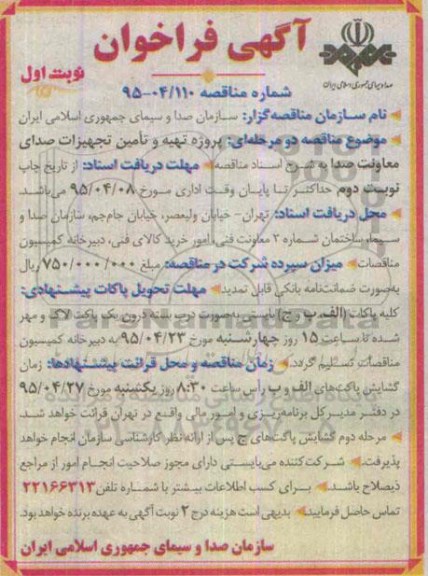 آگهی فراخوان
صدا و سیمای جمهوری اسلامی ایران
نوبت اول
شماره مناقصه ۹۵-۰۴/۱۱۰
نام سازمان مناقصه‌گزار: سازمان صدا و سیمای جمهوری اسلامی ایران
موضوع مناقصه دو مرحله‌ای: پروژه تهیه و تأمین تجهیزات صدای
معاونت صدا به شرح اسناد مناقصه مهلت دریافت اسناد: از تاریخ چاپ
نوبت دوم حداکثر تا پایان وقت اداری مورخ ۹۵/۰۴/۰۸ می‌باشد.
محل دریافت اسناد: تهران- خیابان ولیعصر، خیابان جام‌جم، سازمان صدا و
سیما، ساختمان شماره ۲ معاونت فنی، امور خرید کالای فنی، دبیرخانه کمیسیون
مناقصات میزان سپرده شرکت در مناقصه: مبلغ ۷۵۰/۰۰۰/۰۰۰ ریال
به‌صورت ضمانت‌نامه بانکی قابل تمدید مهلت تحویل پاکات پیشنهادی:
کلیه پاکات (الف، ب و ج) بایستی به‌صورت درب بسته درون یک پاکت لاک و مهر
شده تا ساعت ۱۵ روز چهارشنبه مورخ ۹۵/۰۴/۲۳ به دبیرخانه کمیسیون
مناقصات تسلیم گردد. زمان مناقصه و محل قرائت پیشنهادها: زمان
گشایش پاکت‌های الف و ب رأس ساعت ۸:۳۰ روز یکشنبه مورخ ۹۵/۰۴/۲۷
در دفتر مدیر کل برنامه‌ریزی و امور مالی واقع در تهران قرائت خواهد شد.
مرحله دوم گشایش پاکت‌های ج پس از ارائه نظر کارشناسی سازمان انجام خواهد
پذیرفت. شرکت‌کننده می‌بایستی دارای مجوز صلاحیت انجام امور از مراجع
ذیصلاح باشد. برای کسب اطلاعات بیشتر با شماره تلفن ۲۲۱۶۶۳۱۳
تماس حاصل فرمایید. بدیهی است هزینه درج ۲ نوبت آگهی به عهده برنده خواهد بود.
سازمان صدا و سیمای جمهوری اسلامی ایران